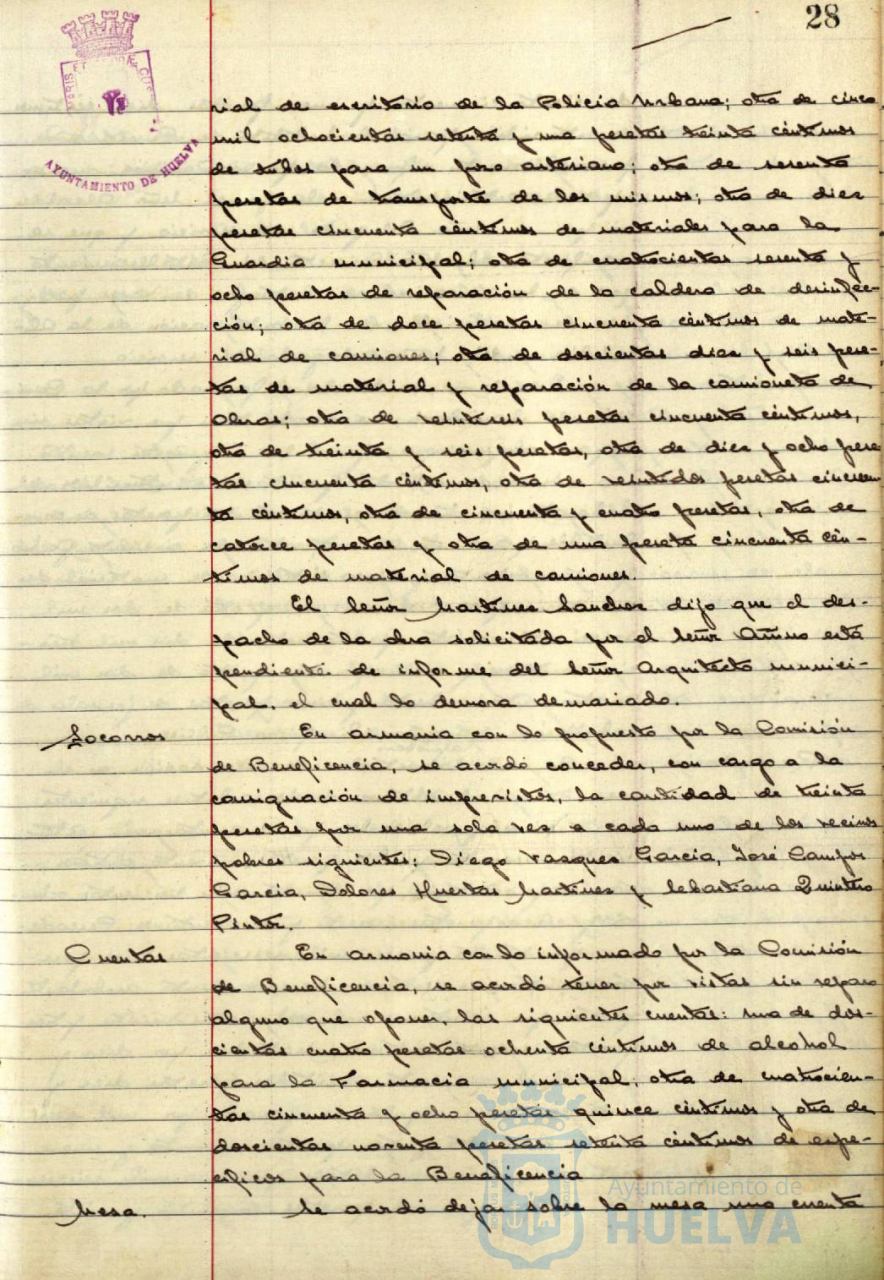 28
AYUNTAMIENTO DE HUELVA
rial de escritorio de la Policia Urbana; otra de cinco
mil ochocientas setenta y una pesetas treinta céntimos
de tubos para un pozo artesiano; otra de sesenta
pesetas de transporte de los mismos; otra de diez
pesetas cincuenta céntimos de materiales para la
Guardia municipal; otra de cuatrocientas sesenta y
ocho pesetas de reparación de la caldera de desinfec-
ción; otra de doce pesetas cincuenta céntimos de mate-
rial de camiones; otra de doscientas diez y seis pese-
tas de material y reparación de la camioneta de
Obras; otra de veintiseis pesetas cincuenta céntimos,
otra de treinta y seis pesetas, otra de diez y ocho pese
tas cincuenta céntimos, otra de veintidos pesetas cincuen
ta céntimos, otra de cincuenta y cuatro pesetas, otra de
catorce pesetas y otra de una peseta cincuenta cén-
timos de material de camiones.
El Señor Martinez Sanchez dijo que el des-
pacho de la obra solicitada por el Señor está
pendiente de informe del Señor Arquitecto munici-
pal, el cual lo demora demasiado.
Socorros
En armonia con lo propuesto por la Comisión
de Beneficencia, se acordó conceder, con cargo a la
consignación de imprevistos, la cantidad de treinta
pesetas por una sola vez a cada uno de los vecinos
pobres siguientes: Diego Vazquez Garcia, José Campos
Garcia, Dolores Huertas Martinez y Sebastiana Quintero
Pintor.
Cuentas
En armonia con lo informado por la Comisión
de Beneficencia, se acordó tener por vistas sin reparo
alguno que oponer, las siguientes cuentas: una de dos-
cientas cuatro pesetas ochenta céntimos de alcohol
para la Farmacia municipal, otra de cuatrocien-
tas cincuenta y ocho pesetas quince céntimos y otra de
doscientas noventa pesetas setenta céntimos de espe-
cificos para la Beneficencia
Mesa.
Se acordó dejar sobre la mesa una cuenta
Ayuntamiento de
HUELVA